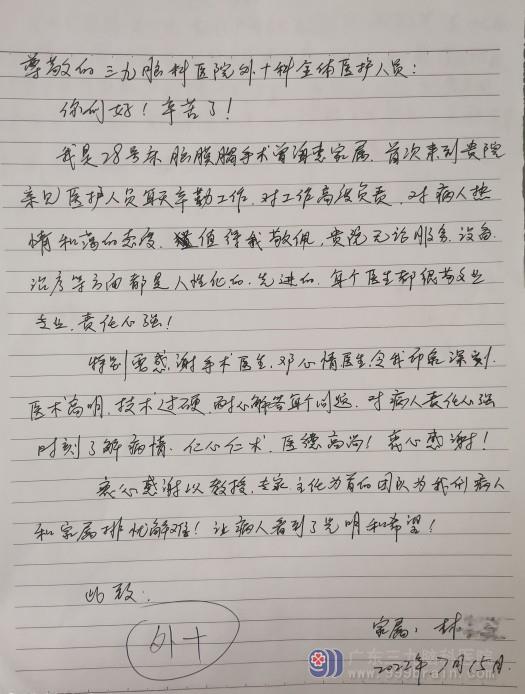 尊敬的三九脑科医院外十科全体医护人员：
你们好！辛苦了！
我是28号床脑膜瘤手术曾海惠家属，首次来到贵院
亲见医护人员每天辛勤工作，对工作高度负责，对病人热
情和蔼的态度，值得我敬佩，贵院无论服务、设备
治疗等方面都是人性化的，先进的，每个医生都很敬业
专业，责任心强！
特别要感谢手术医生，邓心情医生，令我印象深刻
医术高明，技术过硬，耐心解答每个问题，对病人责任心强
时刻了解病情，仁心仁术，医德高尚！衷心感谢！
衷心感谢以教授、专家、主任为首的团队为我们病人
和家属排忧解难！让病人看到了光明和希望！
此致：
外十
家属：林
2022年7月15日
广东三九脑科医院
www.999brain.com